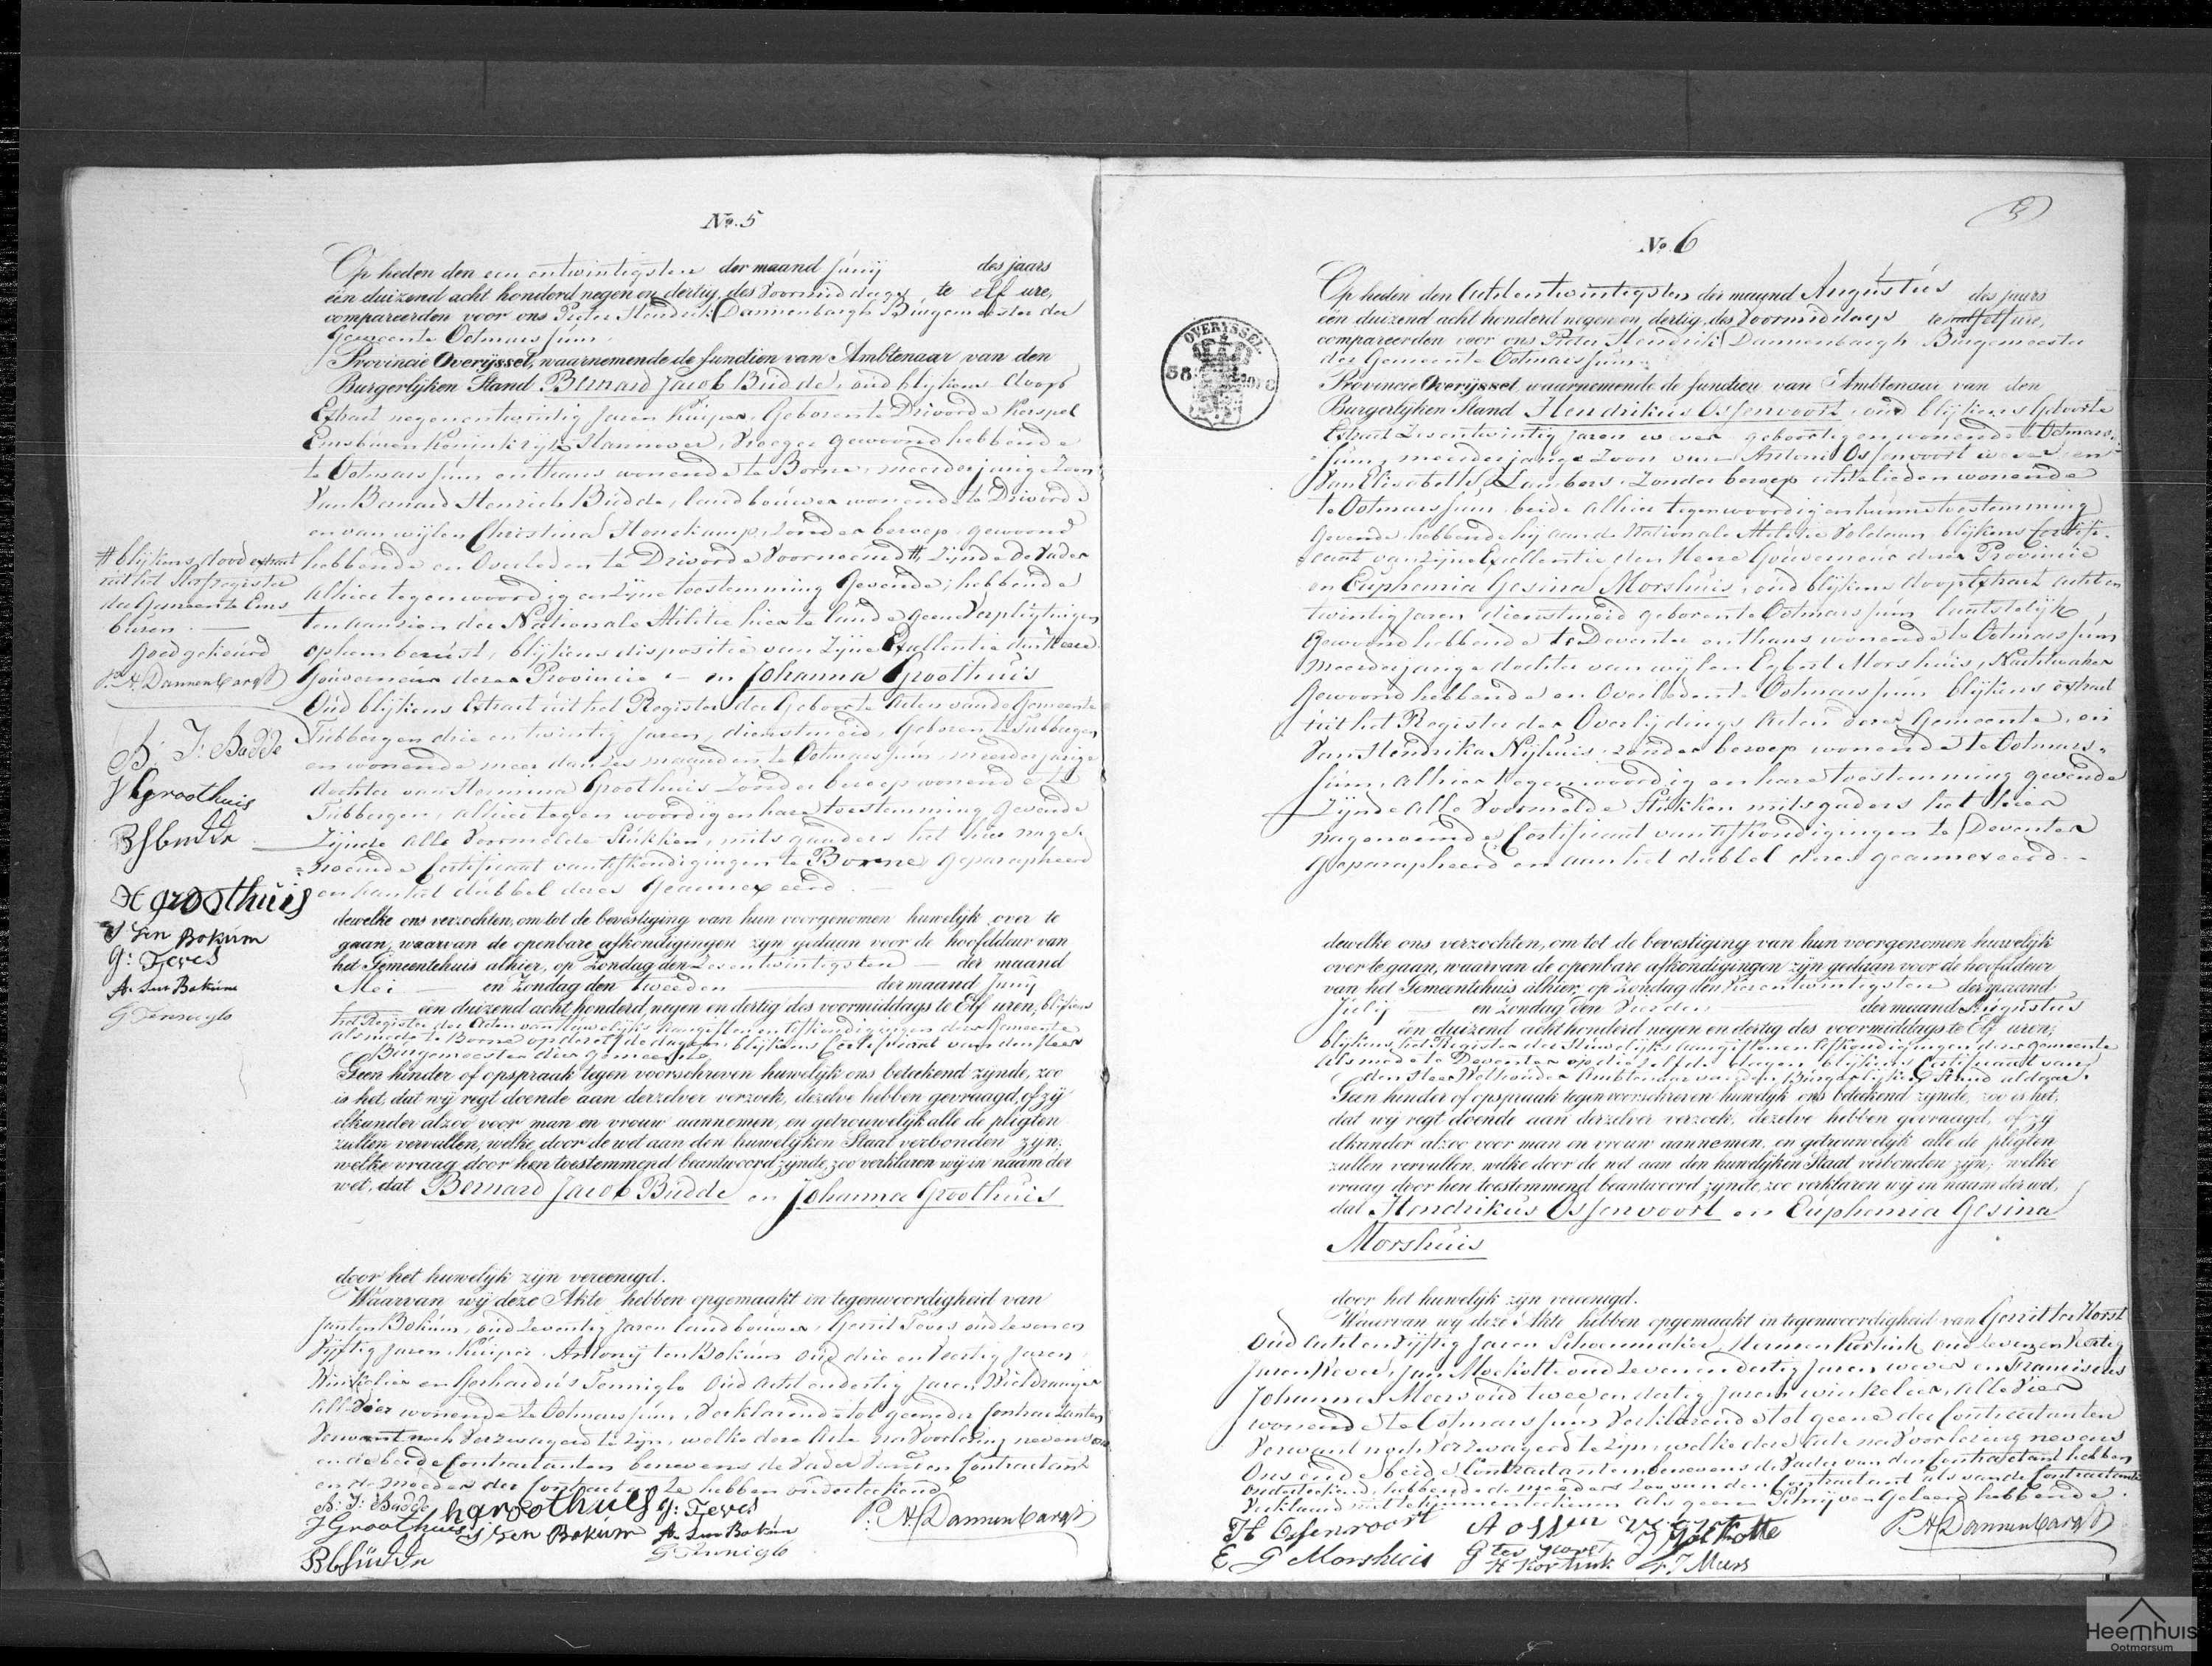 No. 5
Op heden den een entwintigsten der maand Junij des jaars
een duizend acht honderd negen en dertig, des Voormiddags te elf ure,
compareerden voor ons Pieter Hendrik Dannenbargh Burgemeester der
Gemeente Ootmarssum
Provincie Overijssel, waarnemende de functien van Ambtenaar van den
Burgerlijken Stand Bernard Jacob Budde, oud blijkens doop
Extract negenentwintig Jaren Kuiper, Geboren te Drivorde Kerspel
Emsburen Koninkrijk Hannover, Vroeger gewoond hebbende
te Ootmarssum en thans wonende te Borne, meerderjarige Zoon
van Bernard Henrich Budde, landbouwer wonende te Drivorde
en van wijlen Christina Honekamp, zonder beroep, gewoond
hebbende en Overleden te Drivorde Voornoemd #, Zijnde de Vader
alhier tegenwoordig en Zijne toestemming Gevende; hebbende
ten aanzien der Nationale Militie hier te lande geene Verpligtingen
op hem berust, blijkens dispositie van Zijne Excellentie den Heere
Gouverneur dezer Provincie – en Johanna Groothuis
Oud blijkens Extract uit het Register der Geboorte Acten van de Gemeente
Tubbergen drie en twintig Jaren, dienstmeid, Geboren te Tubbergen
en wonende meer dan zes maanden te Ootmarssum, meerderjarige
dochter van Hermina Groothuis Zonder beroep wonende te
Tubbergen, alhier tegenwoordig en hare toestemming Gevende
Zijnde alle Voormelde Stukken, mitsgaders het hier nage-
noemde Certificaat van Afkondigingen te Borne Geparapheerd
en aan het dubbel dezes Geannexeerd. –
# blijkens dood extract
uit het Sterfregister
der Gemeente Ems
buren. —
Goedgekeurd
P. H. Dannenbargh
B: J: Budde
J Groothuis
B H Budde
H groothuis
J ten Bokum
G: Teves
A. ten Bokum
G Tenniglo
dewelke ons verzochten, om tot de bevestiging van hun voorgenomen huwelijk over te
gaan, waarvan de openbare afkondigingen zijn gedaan voor de hoofddeur van
het Gemeentehuis alhier, op Zondag den Zesentwintigsten — der maand
Mei — en Zondag den tweeden — der maand Junij
een duizend acht honderd negen en dertig des voormiddags te Elf uren, blijkens
het Register der Acten van Huwelijks Aangiften en Afkondigingen dezer Gemeente
als mede te Borne op dezelfde dagen, blijkens Certificaat van den Heer
Burgemeester dier gemeente
Geen hinder of opspraak tegen voorschreven huwelijk ons beteekend zijnde, zoo
is het, dat wij regt doende aan derzelver verzoek, dezelve hebben gevraagd, of zij
elkander alzoo voor man en vrouw aannemen, en getrouwelijk alle de pligten
zullen vervullen, welke door de wet aan den huwelijken Staat verbonden zijn;
welke vraag door hen toestemmend beantwoord zijnde, zoo verklaren wij in naam der
wet, dat Bernard Jacob Budde en Johanna Groothuis
door het huwelijk zijn vereenigd.
Waarvan wij deze Akte hebben opgemaakt in tegenwoordigheid van
Jan ten Bokum, oud Zeventig Jaren landbouwer, Gerrit Teves oud Zeven en
Vijftig Jaren, Kuiper, Antonij ten Bokum oud drie en Veertig Jaren,
Winkelier en Gerhardus Tenniglo Oud Acht en dertig Jaren Wieldraaijer
alle Vier wonende te Ootmarssum, Verklarende tot geene der Contractanten
Verwant noch Verzwagerd te Zijn, welke deze Acte na Voorlezing nevens ons
en de beide Contractanten benevens de Vader van den Contractant
en de Moeder der Contractante hebben onderteekend
B: J: Budde hgroothuis G: Teves
J Groothuis J ten Bokum A. ten Bokum
P. H. Dannenbargh
B H Budde G Tenniglo
3
No. 6
OVERYSSEL.
Op heden den Achtentwintigsten der maand Augustus des jaars
een duizend acht honderd negen en dertig, des Voormiddags te elf ure,
compareerden voor ons Pieter Hendrik Dannenbargh Burgemeester
der Gemeente Ootmarssum
Provincie Overijssel, waarnemende de functien van Ambtenaar van den
Burgerlijken Stand Hendrikus Ossenvoort, oud blijkens Geboorte
Extract Zesentwintig Jaren wever geboortig en wonende te Ootmars-
sum, meerderjarige Zoon van Antoni Ossenvoort wever, en
van Elisabeth Lambers Zonder beroep echtelieden wonende
te Ootmarssum, beide alhier tegenwoordig en hunne toestemming
Gevende, hebbende hij aan de Nationale Militie Voldaan, blijkens Certifi-
caat van Zijne Excellentie den Heere Gouverneur dezer Provincie
en Euphemia Gesina Morshuis, oud blijkens doop Extract acht en
twintig Jaren dienstmeid geboren te Ootmarssum laatstelijk
Gewoond hebbende te Deventer en thans wonende te Ootmarssum
meerderjarige dochter van wijlen Egbert Morshuis, Nachtwaker
Gewoond hebbende en Overleden te Ootmarssum blijkens extract
uit het Register der Overlijdings Acten dezer Gemeente, en
van Hendrika Nijhuis, zonder beroep wonende te Ootmars-
sum, alhier tegenwoordig en hare toestemming gevende
Zijnde alle Voormelde Stukken mitsgaders het hier
nagenoemde Certificaat van Afkondigingen te Deventer
Geparapheerd en aan het dubbel dezes geannexeerd. –
dewelke ons verzochten, om tot de bevestiging van hun voorgenomen huwelijk
over te gaan, waarvan de openbare afkondigingen zijn gedaan voor de hoofddeur
van het Gemeentehuis alhier, op Zondag den Vier entwintigsten der maand
Julij — en Zondag den Vierden — der maand Augustus
een duizend acht honderd negen en dertig des voormiddags te Elf uren,
blijkens het Register der Huwelijks aangiften en Afkondigingen dezer gemeente
Als mede te Deventer op die zelfde dagen, blijkens Certificaat van
den Heer Wethouder Ambtenaar van den Burgerlijken Stand aldaar.
Geen hinder of opspraak tegen voorschreven huwelijk ons beteekend zijnde, zoo is het,
dat wij regt doende aan derzelver verzoek, dezelve hebben gevraagd, of zij
elkander alzoo voor man en vrouw aannemen, en getrouwelijk alle de pligten
zullen vervullen, welke door de wet aan den huwelijken Staat verbonden zijn; welke
vraag door hen toestemmend beantwoord zijnde, zoo verklaren wij in naam der wet,
dat Hendrikus Ossenvoort en Euphemia Gesina
Morshuis
door het huwelijk zijn vereenigd.
Waarvan wij deze Akte hebben opgemaakt in tegenwoordigheid van Gerrit ter Horst
Oud Acht en Vijftig Jaren Schoenmaker, Hermen Kortink oud Zeven en Veertig
Jaren Wever, Jan oud Zeven en dertig Jaren wever en Franciscus
Johannes Meers oud twee en dertig Jaren winkelier, alle Vier
wonende te Ootmarssum Verklarend tot geene der Contractanten
Verwant noch Verzwagerd te Zijn, welke deze Acte na Voorlezing nevens
Ons en de beide Contractanten, benevens de Vader van den Contractant hebben
Onderteekend, hebbende de moeders zoo van den Contractant als van de Contractante
Verklaard niet te kunnen teekenen als geen Schrijven Geleerd hebbende.
H Ossenvoort A ossen voort
P. H. Dannenbargh
E G Morshuis G ter Horst
H Kortink F. J Meers
Heemhuis
Ootmarsum